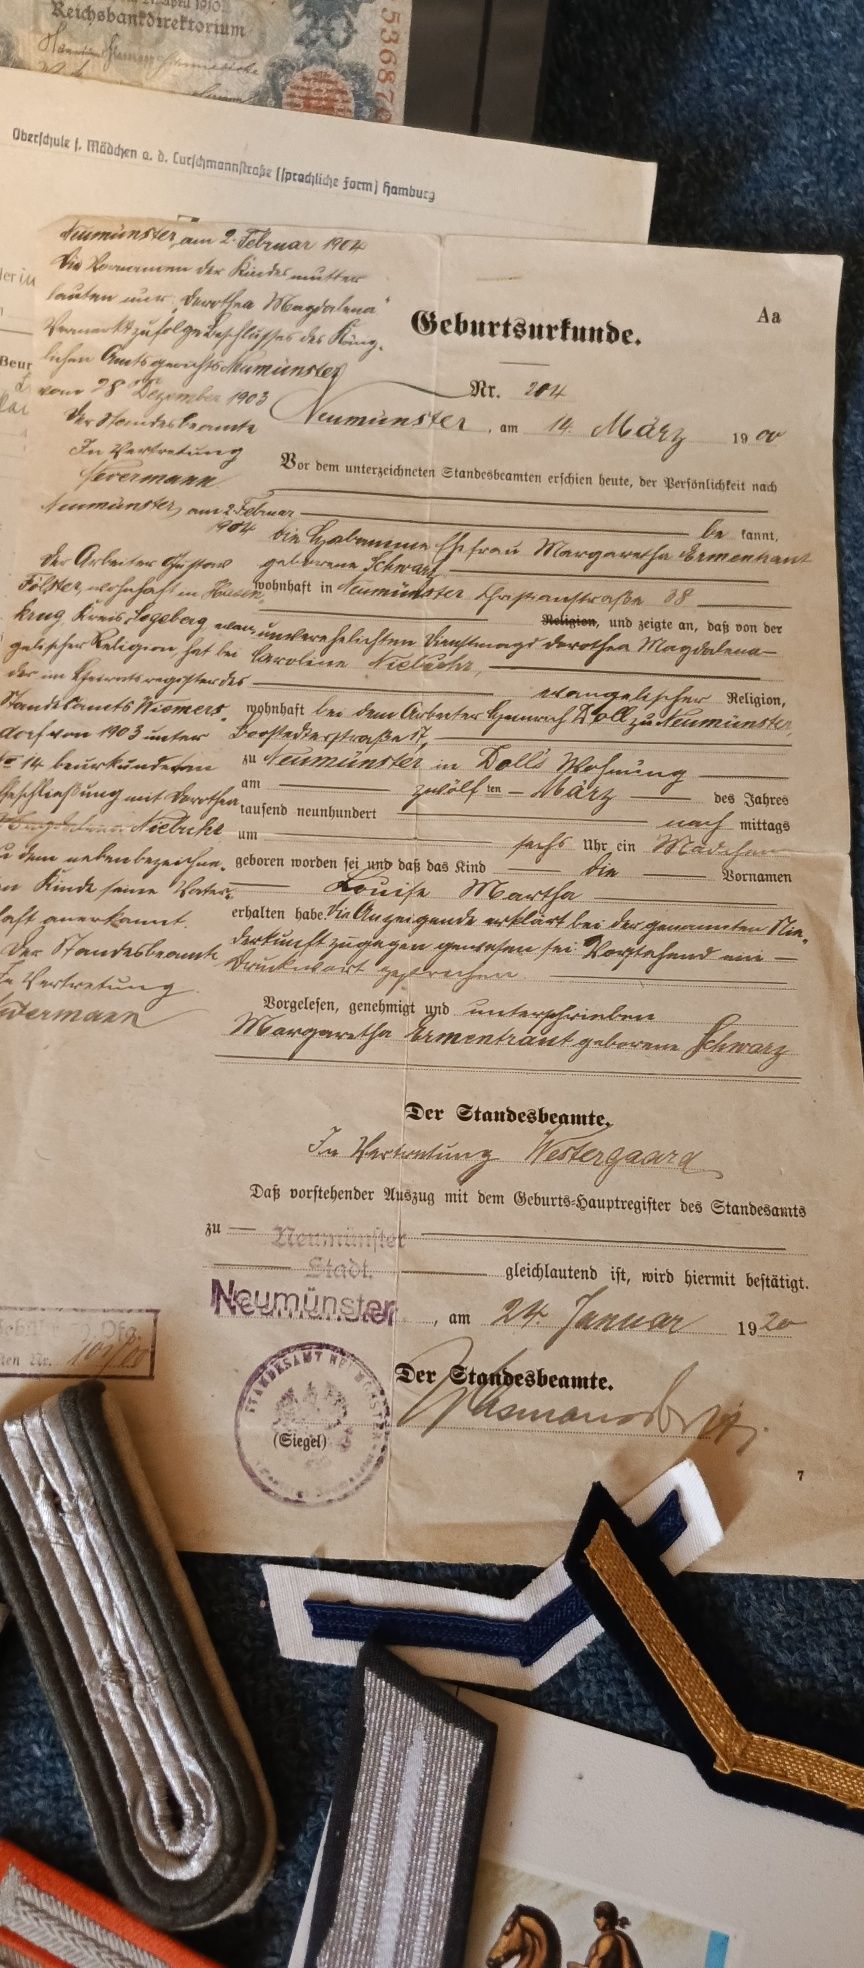 21. April 1910
Reichsbankdirektorium
20
536870
Oberschule f. Mädchen a. d. Curschmannstraße (sprachliche Form) Hamburg
Beur
Aa
Geburtsurkunde.
Nr. 204
Neumünster, am 14. März 1900
Vor dem unterzeichneten Standesbeamten erschien heute, der Persönlichkeit nach
be kannt,
die Hebamme Ehefrau Margaretha Ermentraut
geborene Schwarz
wohnhaft in Neumünster Christianstraße 38
Religion, und zeigte an, daß von der
unverehelichten Dienstmagd Dorothea Magdalena
Caroline Niebuhr,
evangelischer Religion,
wohnhaft bei dem Arbeiter Heinrich Doll zu Neumünster,
Boostedterstraße 17,
zu Neumünster in Doll's Wohnung
am zwölf ten März des Jahres
tausend neunhundert nach mittags
um sechs Uhr ein Mädchen
geboren worden sei und daß das Kind die Vornamen
Louise Martha
erhalten habe. Die Anzeigende erklärt bei der genannten Nie-
derkunft zugegen gewesen sei. Vorstehend ein
Druckwort gestrichen.
Vorgelesen, genehmigt und unterschrieben
Margaretha Ermentraut geborene Schwarz
Der Standesbeamte.
In Vertretung Westergaard
Daß vorstehender Auszug mit dem Geburts-Hauptregister des Standesamts
zu Neumünster
Stadt.
gleichlautend ist, wird hiermit bestätigt.
Neumünster, am 24. Januar 1920
Der Standesbeamte.
STANDESAMT NEUMÜNSTER
(Siegel)
7
Neumünster, am 2. Februar 1904
Die Vornamen der Kindesmutter
lauten nur "Dorothea Magdalena"
Vermerkt zufolge Beschlusses des König-
lichen Amtsgerichts Neumünster
vom 28 Dezember 1903
Der Standesbeamte
In Vertretung
Severmann
Neumünster, am 2 Februar
1904
Der Arbeiter Gustav
Fölster, wohnhaft in Hasen-
krug Kreis Segeberg evan
gelischer Religion, hat bei
der im Heiratsregister des
Standesamts Wiemers-
dorf von 1903 unter
No 14 beurkundeten
Eheschließung mit Dorothea
Magdalena Niebuhr
zu dem nebenbezeichne-
ten Kinde seine Vater-
schaft anerkannt.
Der Standesbeamte
In Vertretung
Severmann
Pfg.
ten Nr. 101/00